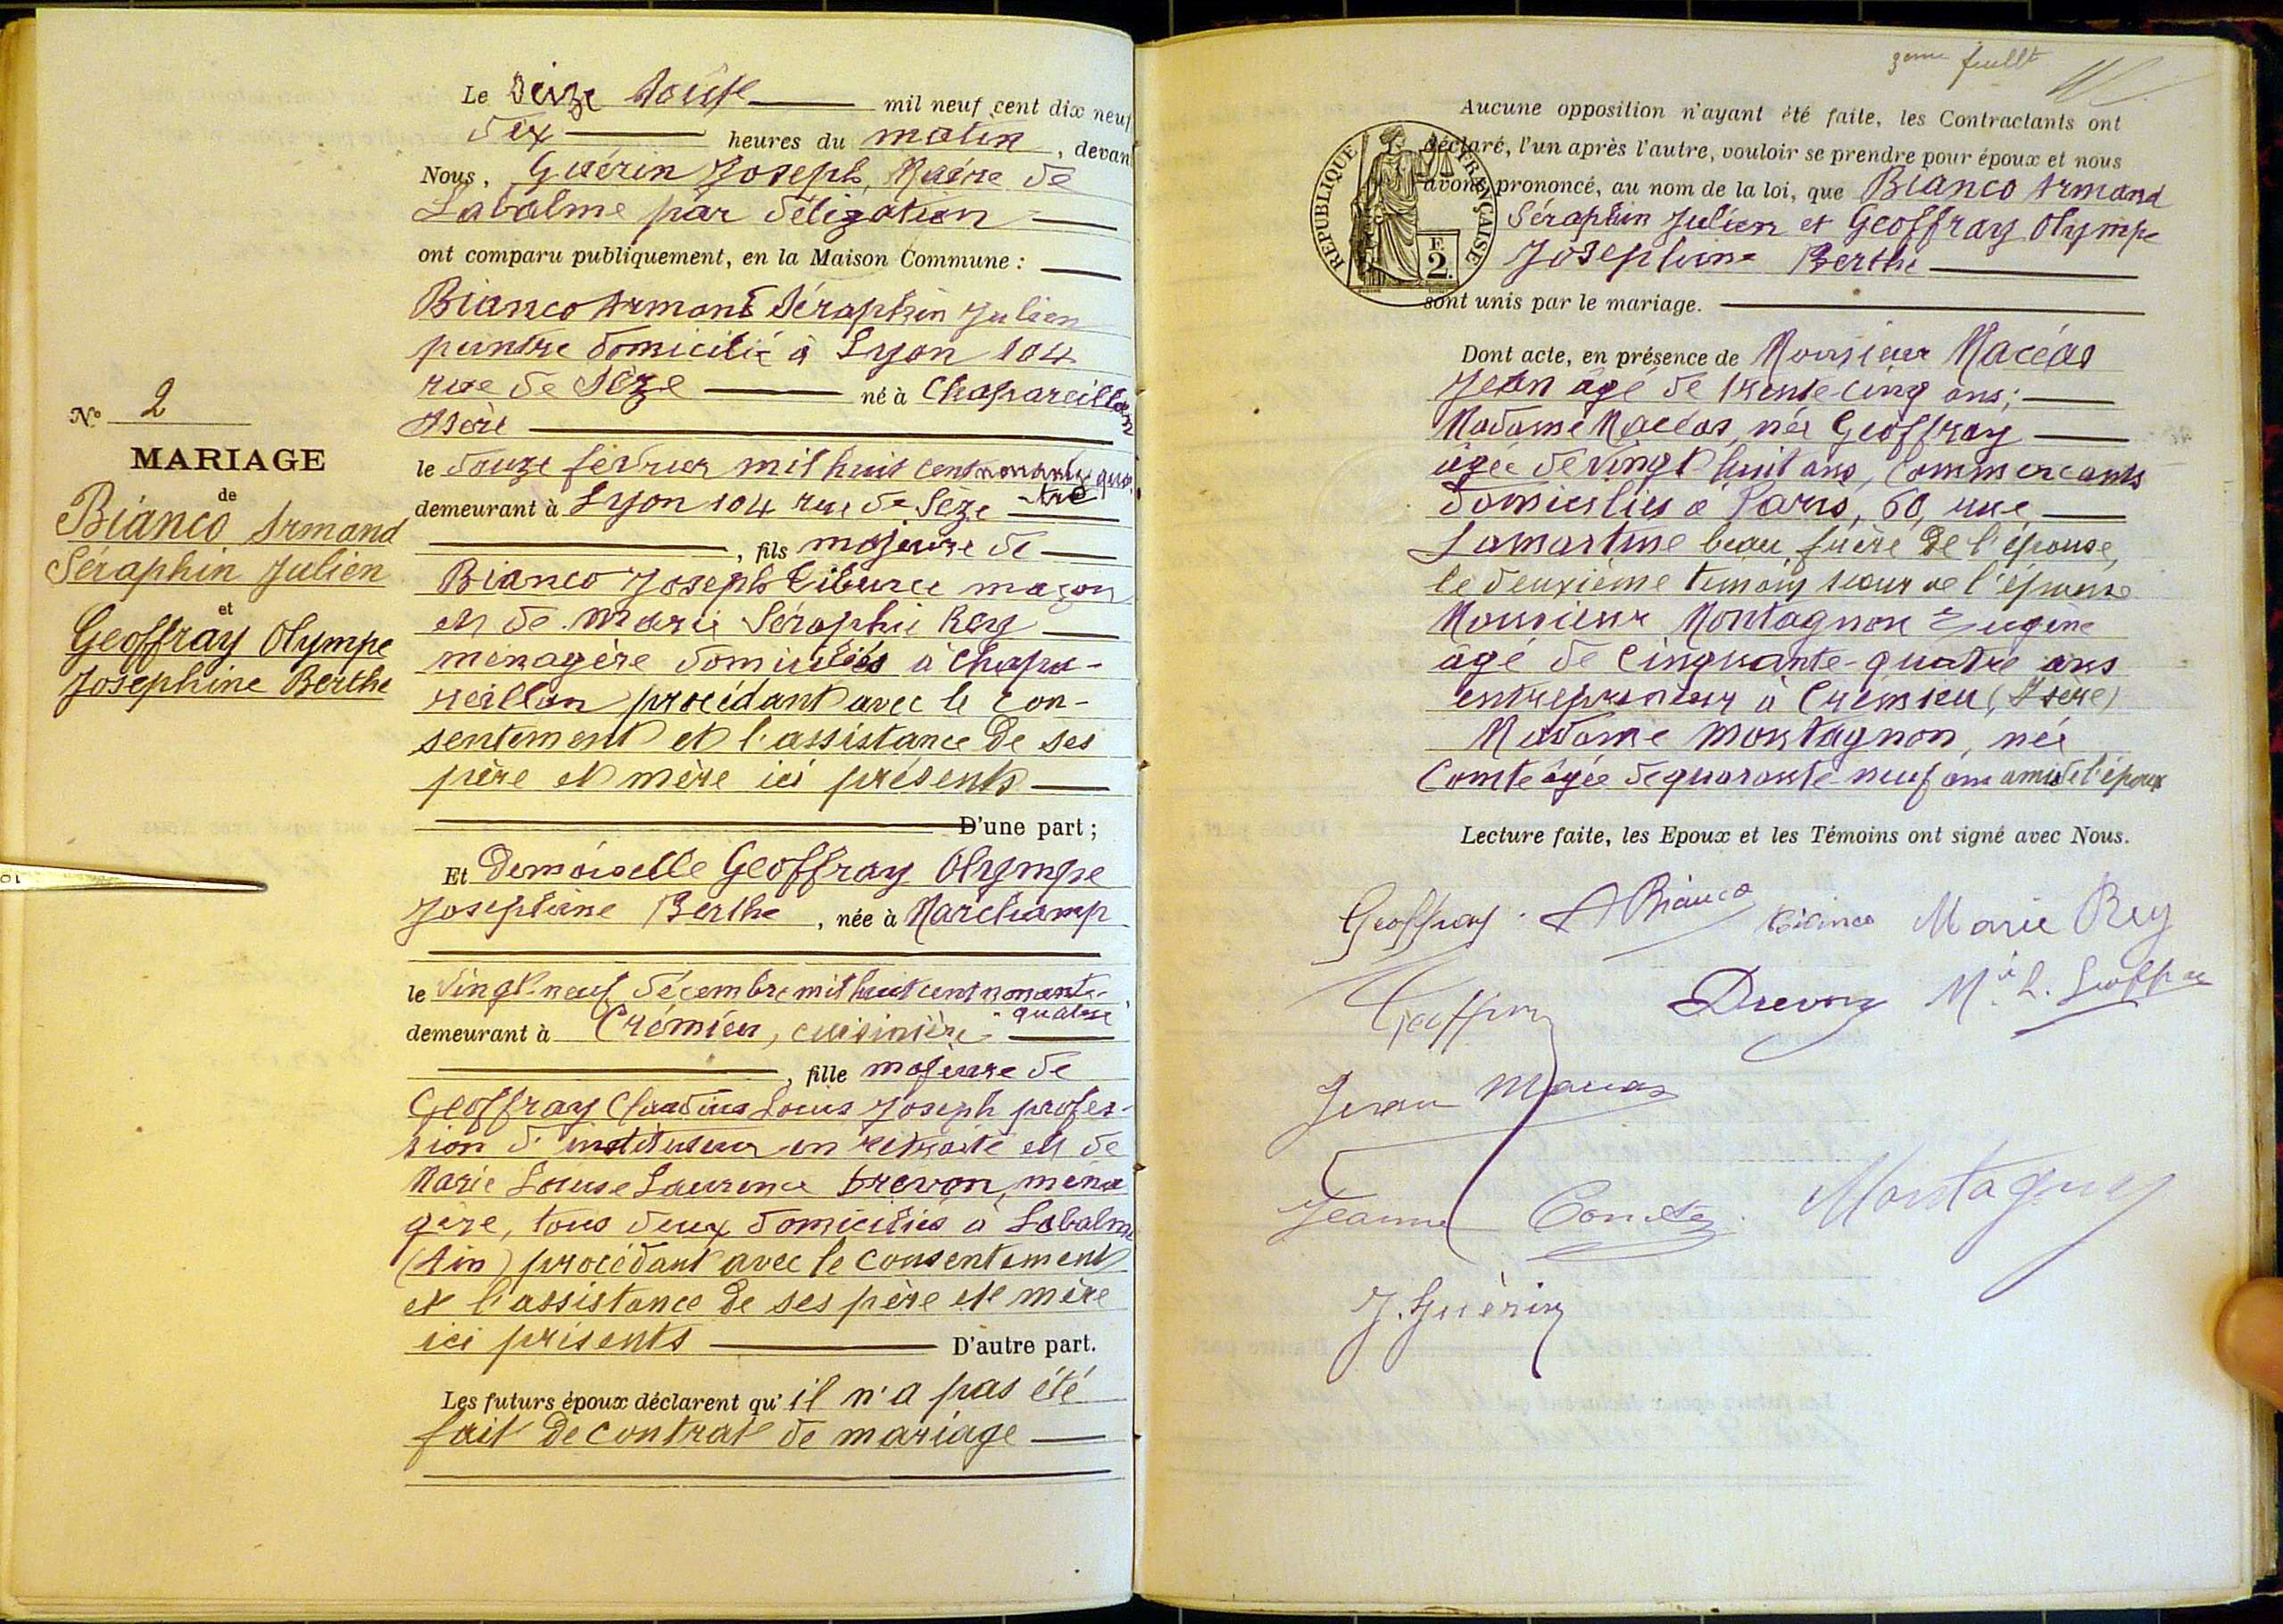 N° 2
MARIAGE
de
Bianco Armand
Séraphin Julien
et
Geoffray Olympe
Josephine Berthe
Le seize Août mil neuf cent dix neuf
dix heures du matin, devant
Nous, Guérin Joseph, Maire de
Labalme par déligation
ont comparu publiquement, en la Maison Commune :
Bianco Armand Séraphin Julien
peintre domicilié à Lyon 104
rue de Sèze né à Chapareillan
Isère
le douze février mil huit cent nonante qua-
tre
demeurant à Lyon 104 rue de Seze
, fils majeure de
Bianco Joseph Tiburce maçon
et de Marie Séraphie Rey
ménagère domiciliés à Chapa-
reillan procédant avec le con-
sentement et l'assistance de ses
père et mère ici présents
D'une part ;
Et Demoiselle Geoffray Olympe
Josephine Berthe, née à Marchamp
le vingt-neuf décembre mil huit cent nonante-
quatre
demeurant à Crémieu, cuisinière
, fille majeure de
Geoffray Claudius Louis Joseph profes-
sion d'instituteur en retraite et de
Marie Louise Laurence Drevon, ména
gère, tous deux domiciliés à Labalme
(Ain) procédant avec le consentement
et l'assistance de ses père et mère
ici présents D'autre part.
Les futurs époux déclarent qu'il n'a pas été
fait de contrat de mariage
3eme feuillt
Aucune opposition n'ayant été faite, les Contractants ont
déclaré, l'un après l'autre, vouloir se prendre pour époux et nous
avons prononcé, au nom de la loi, que Bianco Armand
Séraphin Julien et Geoffray Olympe
Josephine Berthe
sont unis par le mariage.
REPUBLIQUE FRANÇAISE
F.
2.
Dont acte, en présence de Monsieur Macéas
Jean âgé de trente cinq ans;
Madame Macéas, née Geoffray
âgée de vingt huit ans, commerçants
domiciliés à Paris, 60, rue
Lamartine beau frère de l'épouse,
le deuxième temoin sœur de l'épouse
Monsieur Montagnon Eugène
âgé de cinquante-quatre ans
entrepreneur à Crémieu, (Isère)
Madame Montagnon, née
Comte âgée de quarante neuf ans amis de l'époux
Lecture faite, les Epoux et les Témoins ont signé avec Nous.
Geoffray A Bianco Marie Rey
Geoffray Drevon M. L. Geoffray
Jean Maceas
Jeanne Comte Montagnon
J. Guérin